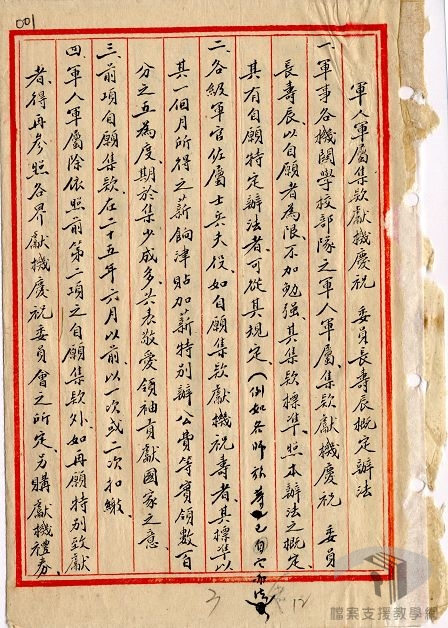 001
軍人軍屬集款獻機慶祝　委員長壽辰概定辦法
一、軍事各機關學校部隊之軍人軍屬、集款獻機慶祝　委員
長壽辰、以自願者為限、不加勉強、其集款標準、照本辦法之概定、
其有自願特定辦法者、可從其規定、(例如各師旅等已自
二、各級軍官佐屬士兵夫役、如自願集款獻機祝壽者、其標準以
其一個月所得之薪餉津貼加薪特別辦公費等實領數百
分之五為度、期於集少成多、共表敬愛領袖貢獻國家之意、
三、前項自願集款、在二十五年六月以前、以一次或二次扣繳、
四、軍人軍屬除依照前第二項之自願集款外、如再願特別致獻
者、得再參照各界獻機慶祝委員會之所定、另購獻機禮券、
12
檔案支援教學網